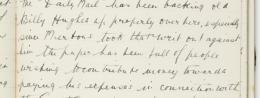 the Daily Mail has been backing old
Billy Hughes up properly over here, & specially
since Mr Bones took that writ out against
him the paper has been full of people
wishing to contribute money towards
paying his expenses in connection with